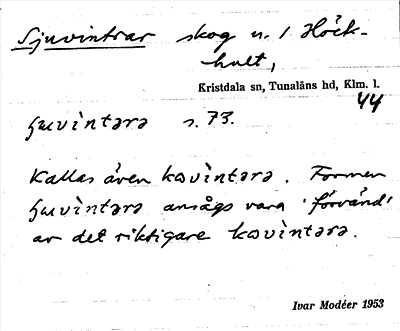 Sjuvintrar skog n. 1 Höck-
hult,
Kristdala sn, Tunaläns hd, Klm. l.
44
ɧuvìntərə s. 73.
Kallas även kɷvìntərə. Formen
ɧuvìntərə ansågs vara 'förvänd'
av det riktigare kɷvìntərə.
Ivar Modéer 1953